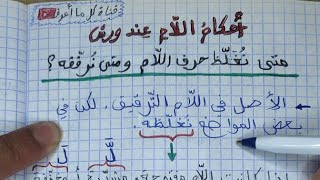 قناة كل ما أعرف
أحكام اللّام عند ورش
متى نُغَلِّظ حرف اللّام ومتى نُرقّقه؟
← الأصل في اللّام التَّرقيق. لكن في
بعض المواضع نُغَلِّظه.
لَّ لَ